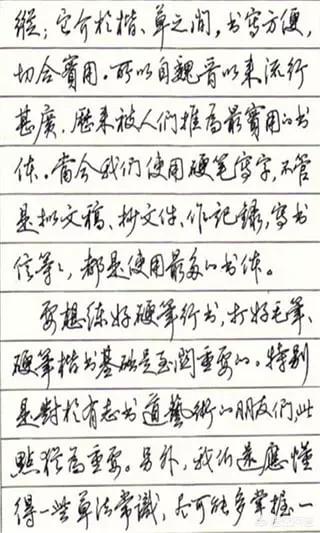 縱；它介於楷、草之间，书寫方便，
切合實用。所以自魏晋以来流行
甚廣，歷来被人们推為最實用的书
体。當今我们使用硬笔寫字，不管
是拟文稿、抄文件、作記録，寫书
信等等，都是使用最多的书体。
要想练好硬筆行书，打好毛筆、
硬筆楷书基础是至関重要的。特别
是對於有志书道藝術的朋友们，此
點猶為重要。另外，我们還應懂
得一些草法常識，尽可能多掌握一